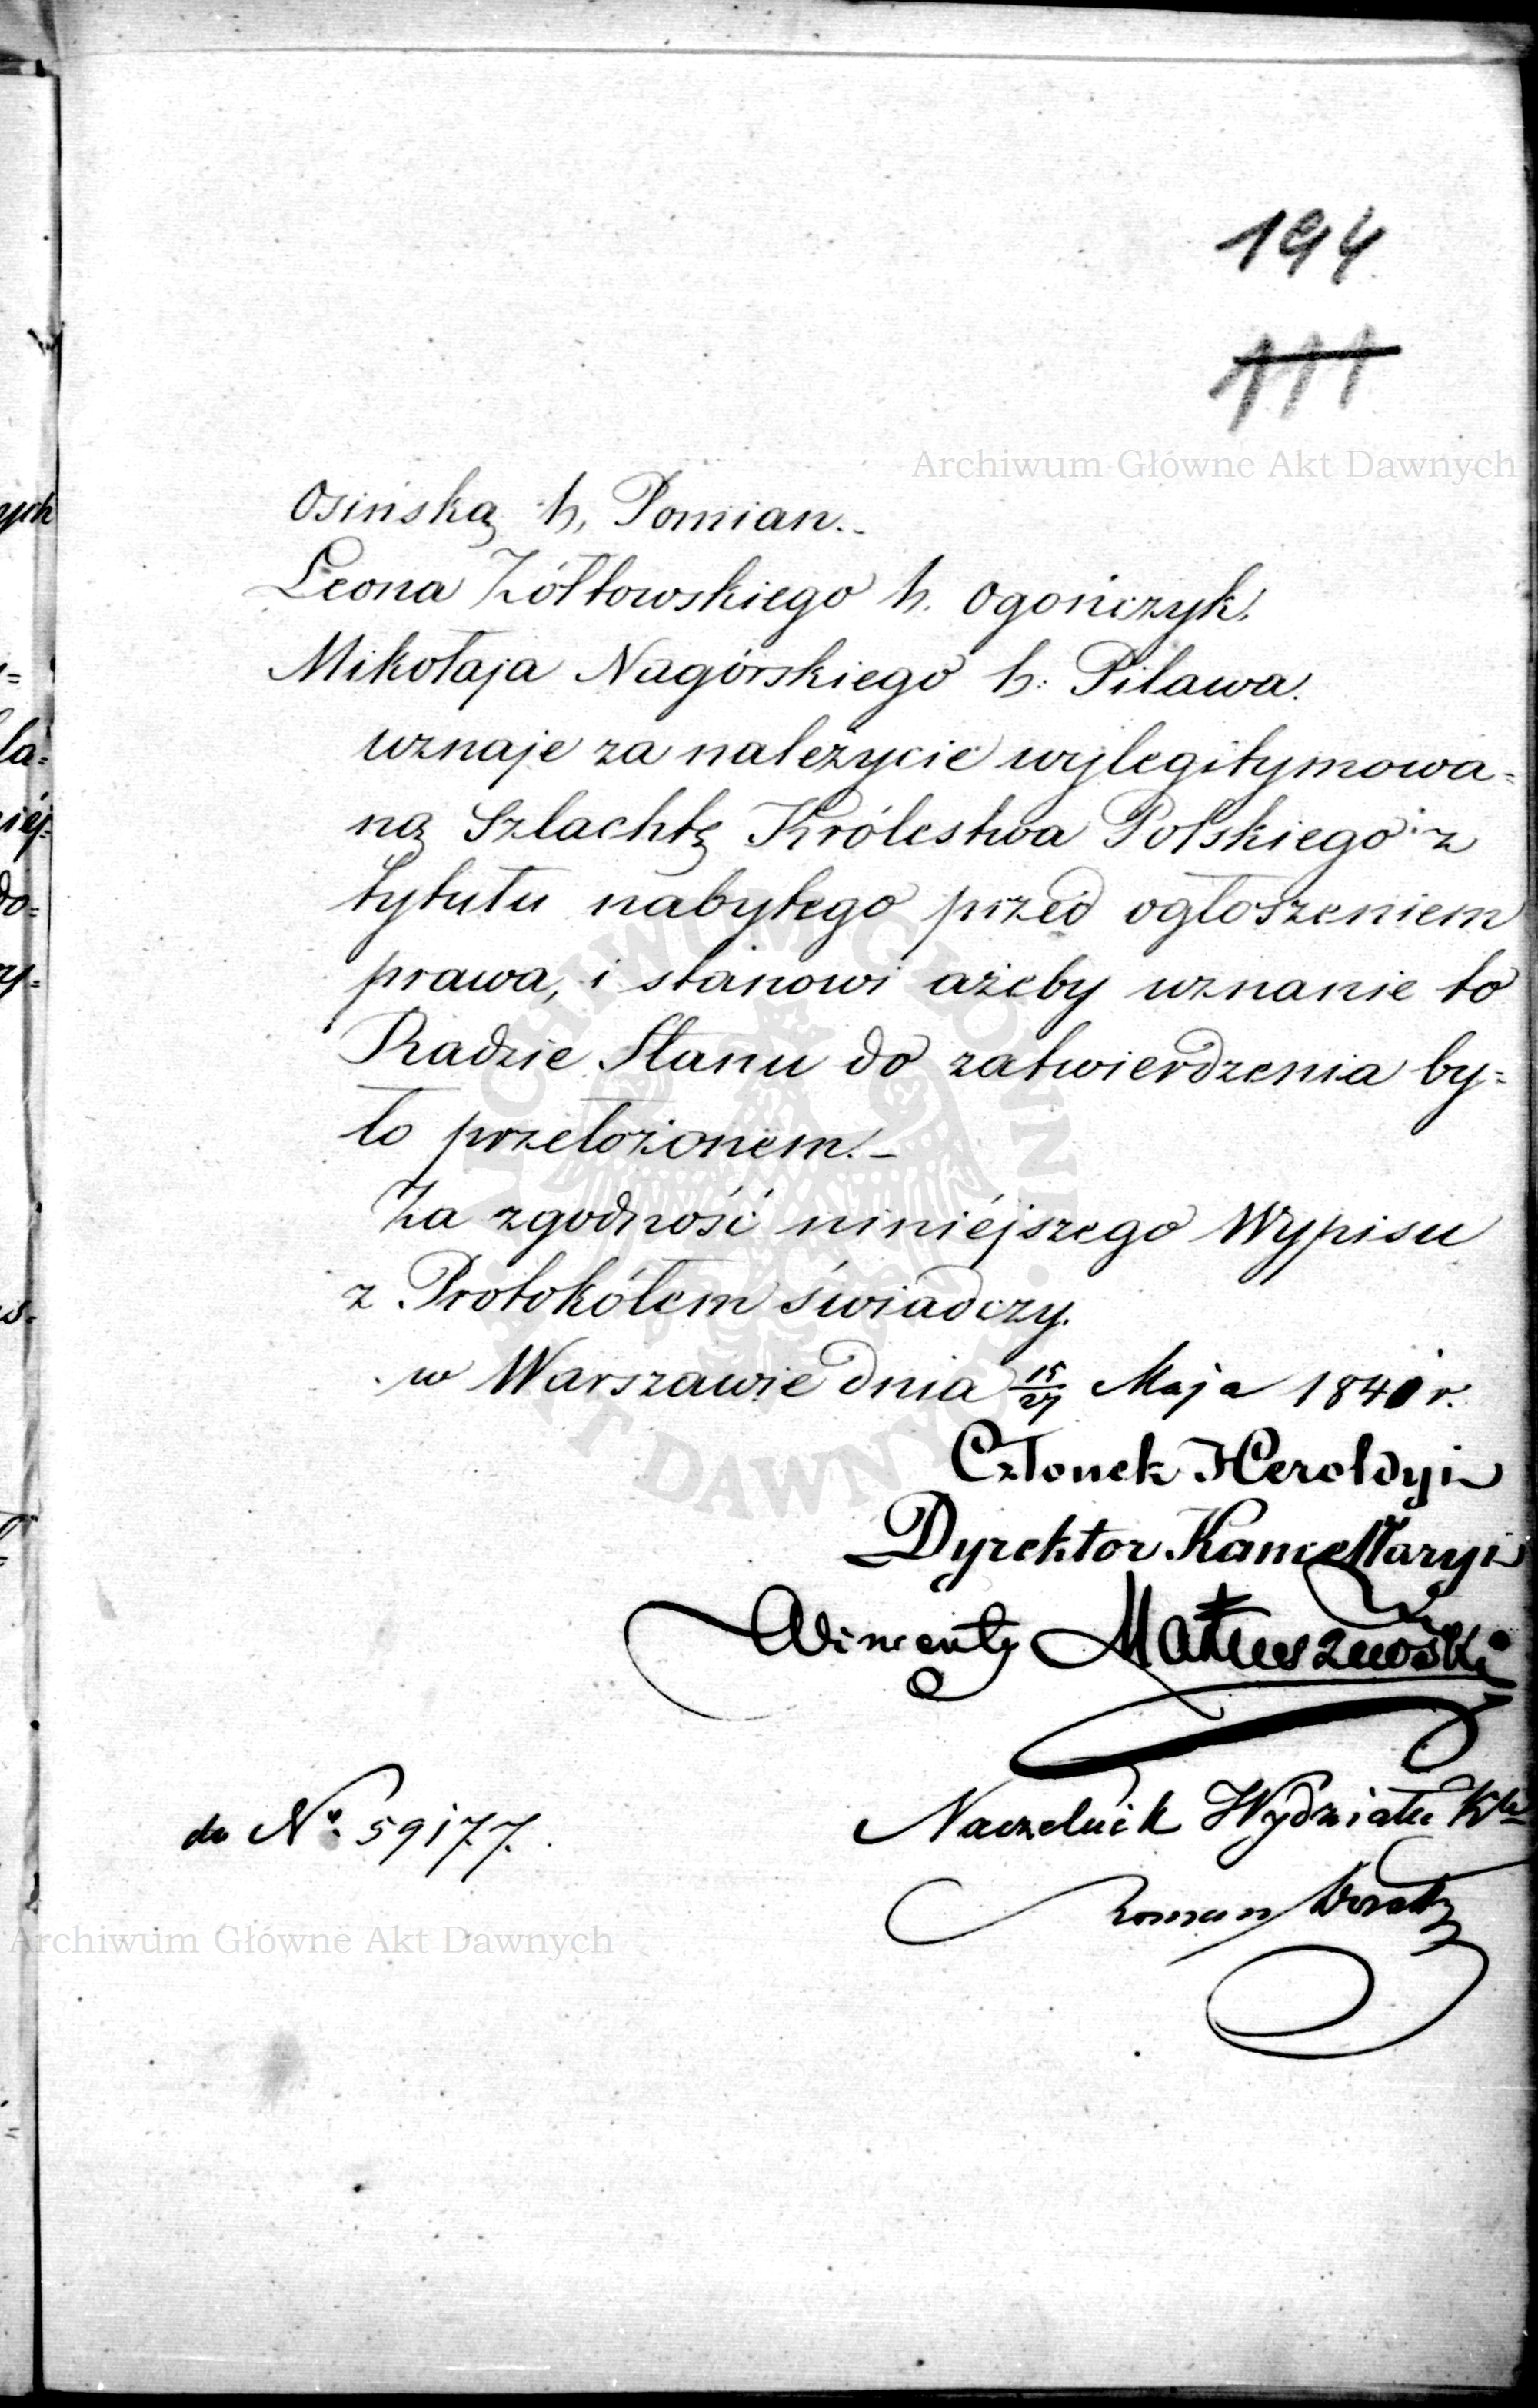 194
111
Osińską h, Pomian.-
Leona Żółtowskiego h. Ogończyk.
Mikołaja Nagórskiego h: Pilawa.
uznaje za należycie wylegitymowa=
ną Szlachtę Królestwa Polskiego z
tytułu nabytego przed ogłoszeniem
prawa, i stanowi ażeby uznanie to
Radzie Stanu do zatwierdzenia by=
ło przełożonem.-
Za zgodność niniéjszego Wypisu
z Protokółem świadczy.
w Warszawie dnia 15/27 Maja 1841 r.
Członek Heroldyi
Dyrektor Kancellaryi
Wincenty Matuszewski
Naczelnik Wydziału
do No. 59177.
Roman
Archiwum Główne Akt Dawnych
Archiwum Główne Akt Dawnych
ARCHIWUM GŁÓWNE AKT DAWNYCH